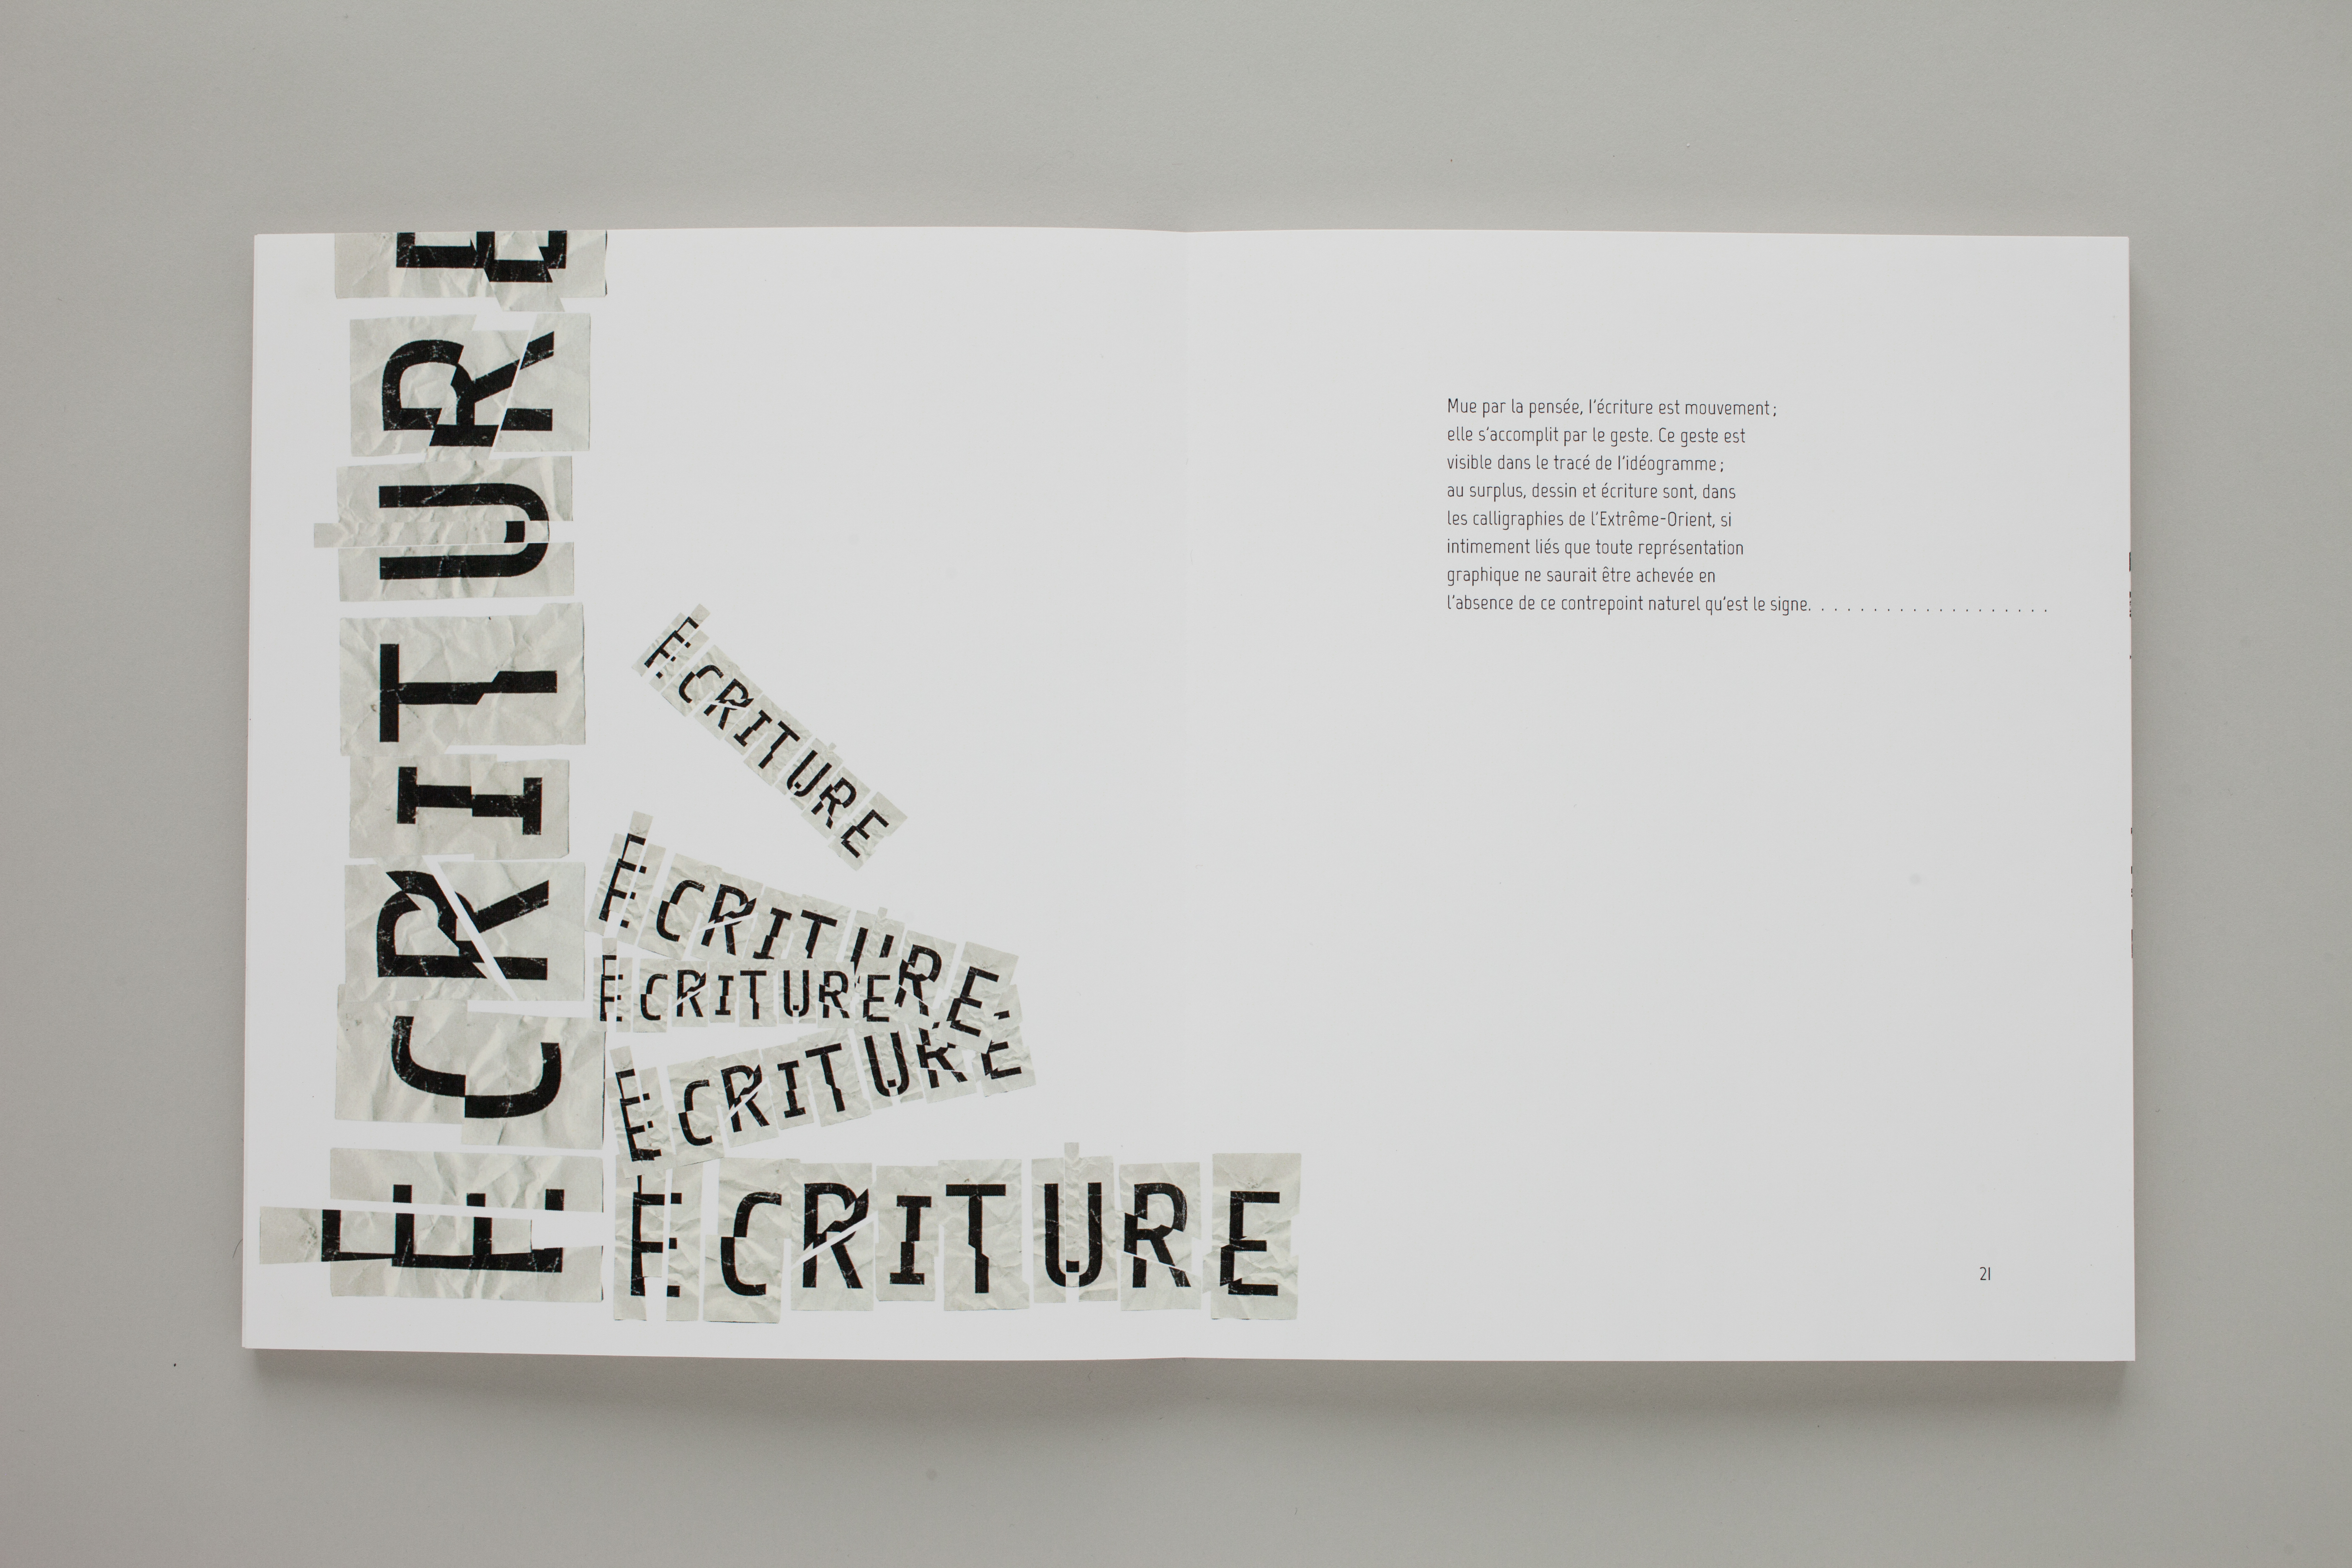 ECRITURE
ECRITURE
ECRITURE
ECRITURE
ECRITURE
ECRITURE
Mue par la pensée, l'écriture est mouvement ;
elle s'accomplit par le geste. Ce geste est
visible dans le tracé de l'idéogramme ;
au surplus, dessin et écriture sont, dans
les calligraphies de l'Extrême-Orient, si
intimement liés que toute représentation
graphique ne saurait être achevée en
l'absence de ce contrepoint naturel qu'est le signe. . . . . . . . . . . . . . . . . . .
21